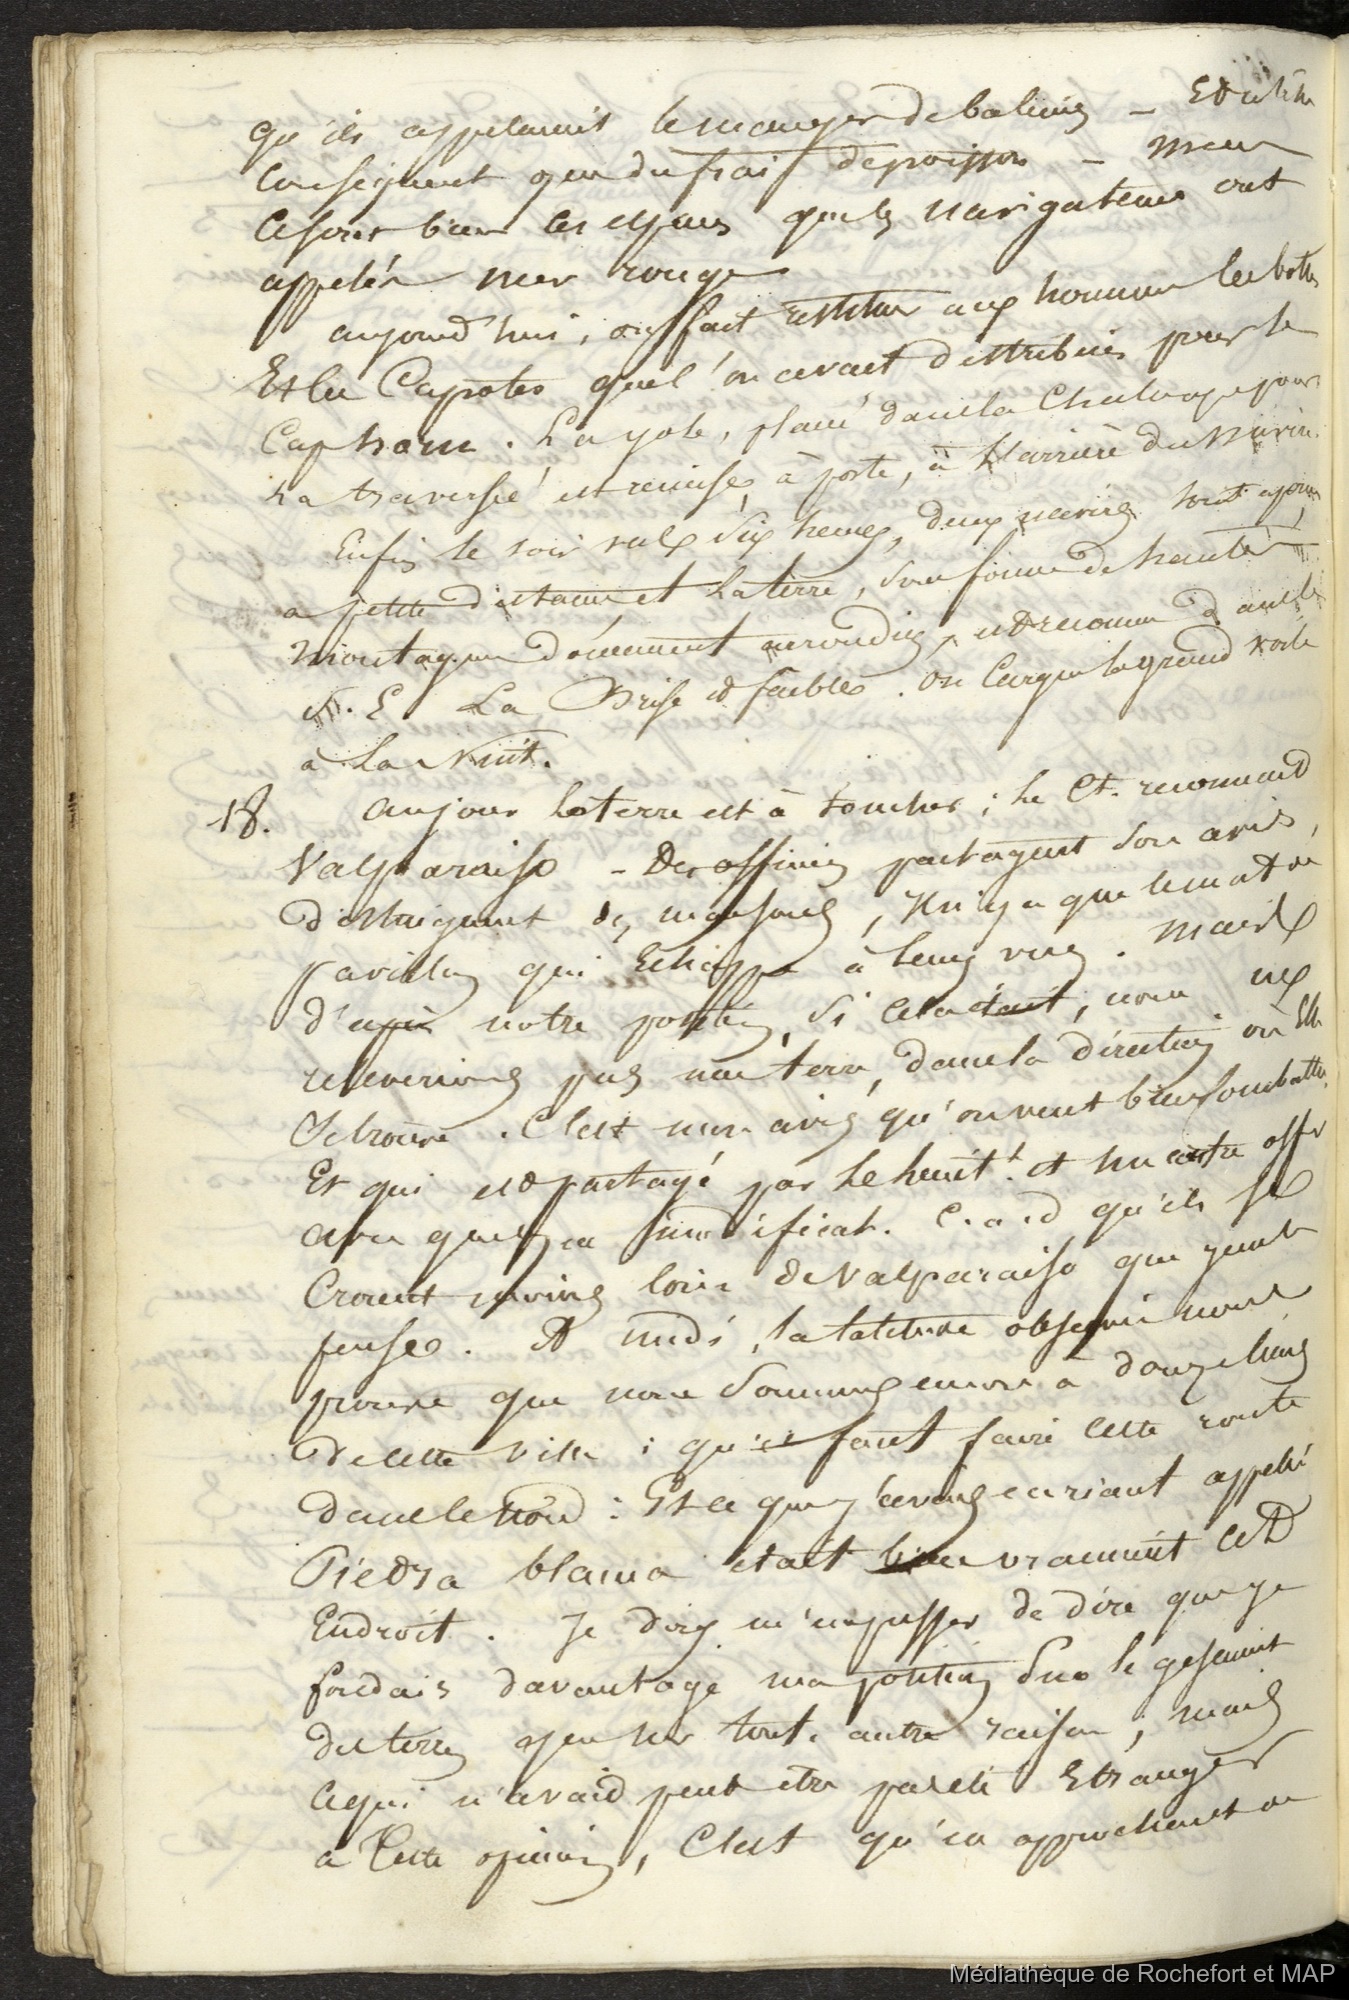 qu'ils appelaient le manger de baleines - Et n'était
conséquent que du frai de poisson - 
Ce sont bien les espaces que les navigateurs ont
appelés mer rouge
aujourd'hui, on fait restituer aux hommes les bottes
Et les Capotes que l'on avait distribuées pour le
Cap horn. La yole, placée dans la Chaloupe pour
La traversée est remise, à poste, à l'arrière du Navire.
Enfin le soir vers six heures, deux navires sont aperçus
a petite distance et La terre, sous forme de hautes
Montagnes doucement arrondies, est reconnue dans le
N. E La Brise est faible. On Cargue la grand voile
à La Nuit.
18. au jour la terre est à toucher; Le Ct. reconnaît
Valparaiso - Des officiers partagent son avis,
distinguent des maisons, Il n'y a que le mat de
pavillon qui Echappe à leurs vues. Mais
d'après notre position, si cela était, nous ne
releverions pas une terre, dans la direction où Elle
Se trouve. C'est mon avis qu'on veut bien combattre,
Et qui est partagé par Le Lieut.t et un autre offr
avec quelq modificat. C.a.d qu'ils se
Croient moins loin de Valparaiso que je ne le
pense. A midi, la latitude observée nous
prouve que nous sommes encore à douze lieues
de cette ville; qu'il faut faire cette route
dans le Nord: Et ce que j'avais en riant appelé
Piedra blanca était bien vraiment cet
Endroit. Je dois m'empresser de dire que je
fondais davantage ma position sur le gisement
des terres que sur toute autre raison; mais
Ce qui n'avait peut etre pas été Etranger
à Cette opinion, C'est qu'en approchant de
Médiathèque de Rochefort et MAP